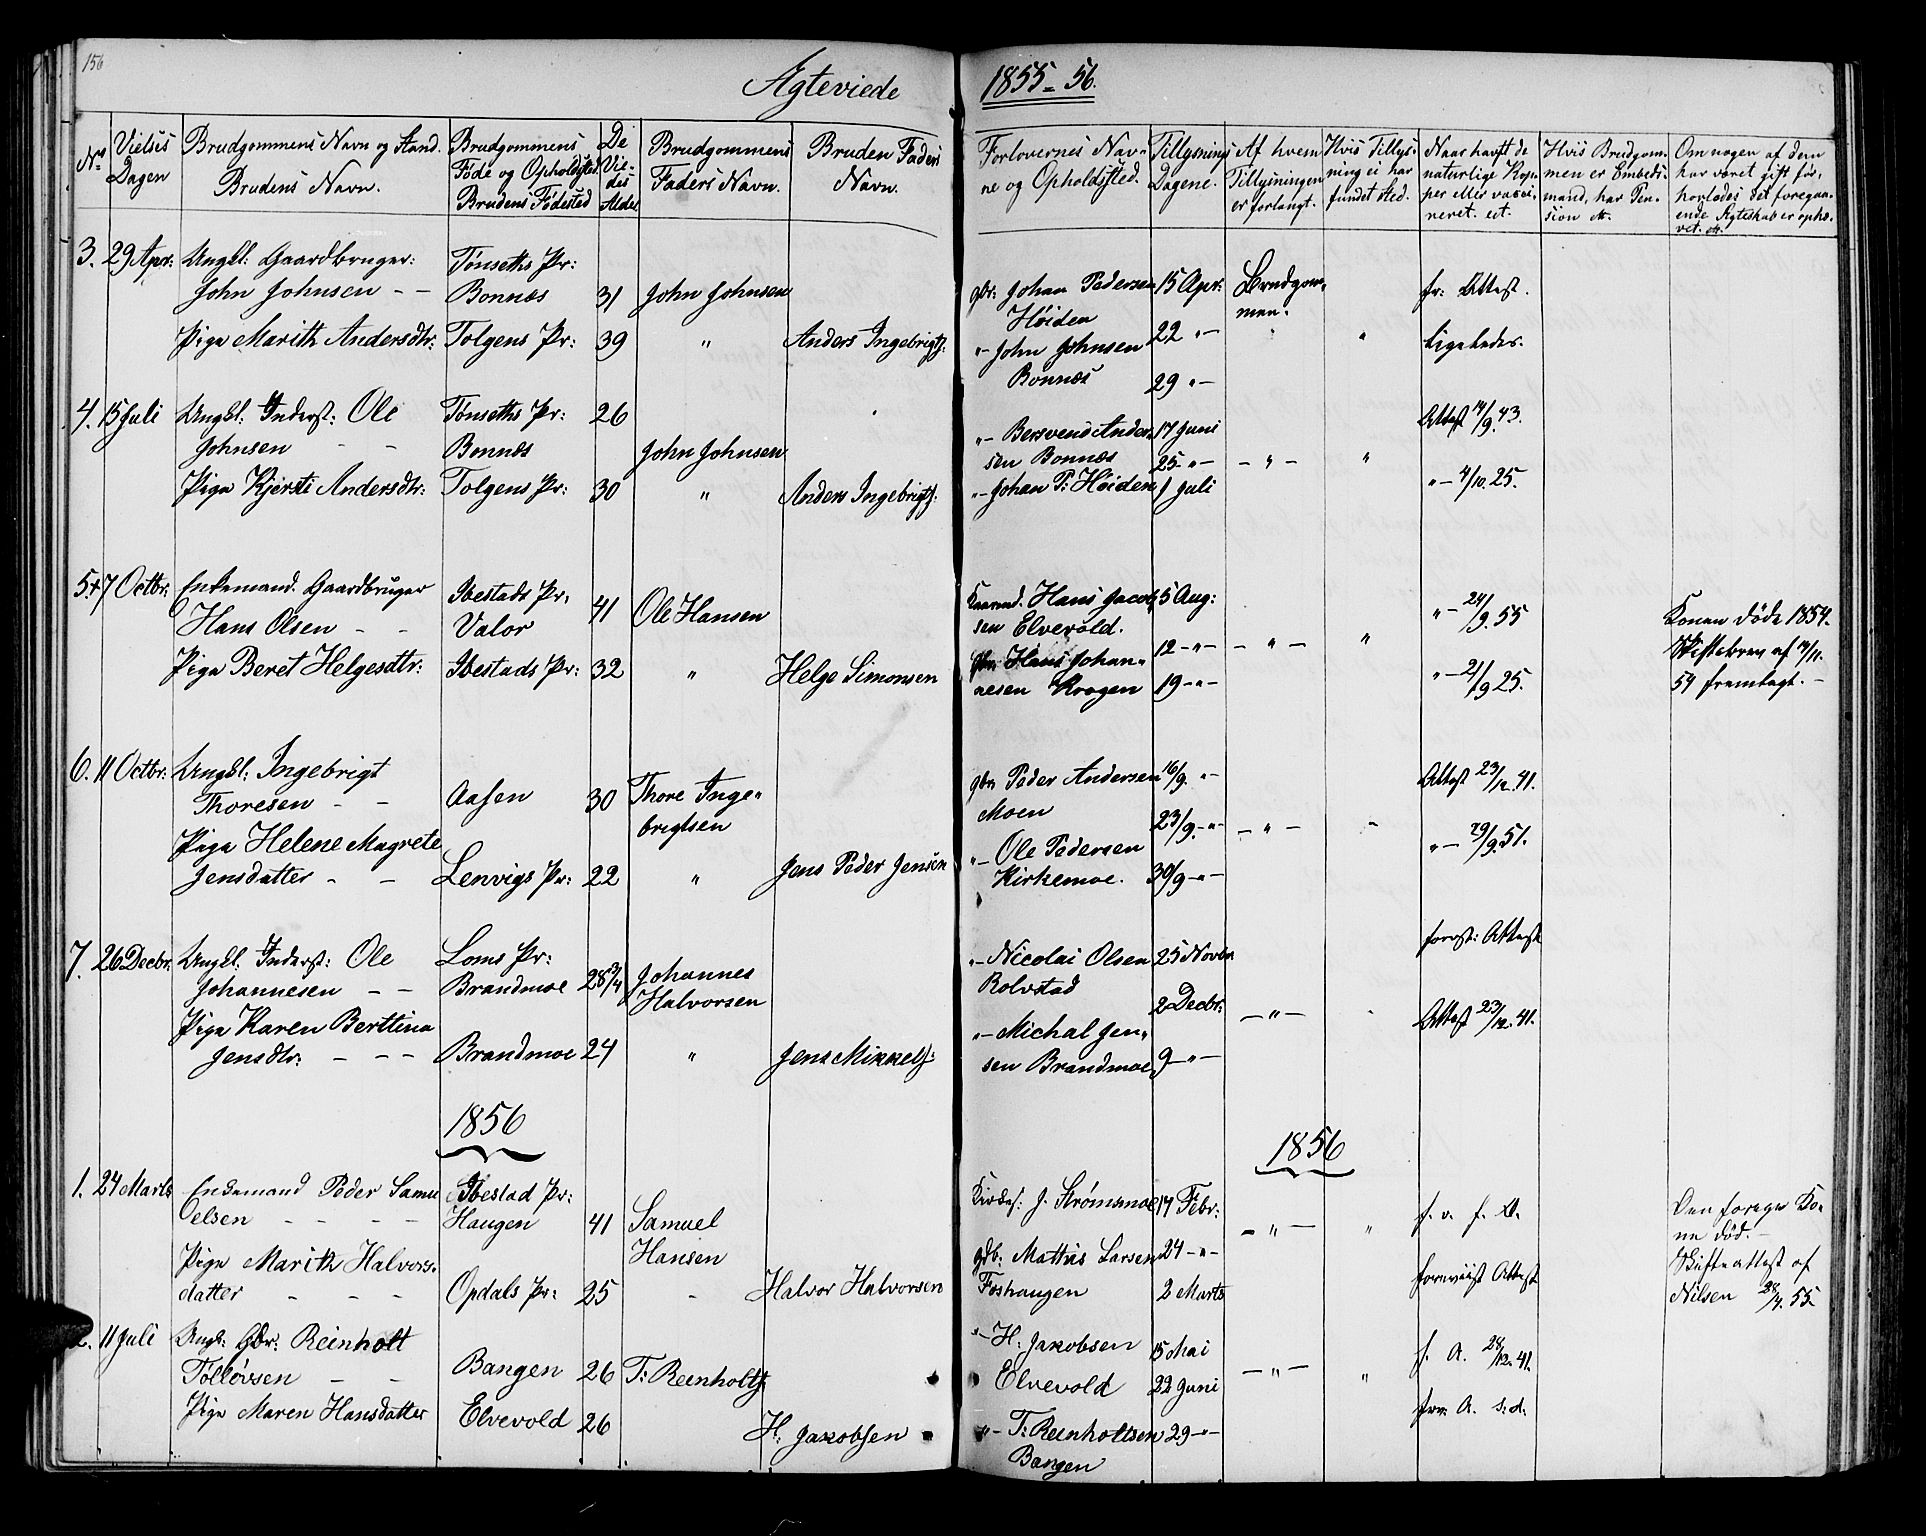 156
Ægteviede
1855-56.
No
Vielses Dagen
Brudgommens Navn og Stand. Brudens Navn.
Brudgommens Føde og Opholdsted Brudens Fødested
De Viedes Alder
Brudgommens Faders Navn.
Bruden Faders Navn.
Forlovernes Navne og Opholdsted.
Tillysnings Dagene.
Af hvem Tillysningen er forlangt.
Hvis Tillysning ei har fundet sted.
Naar havft de naturlige Kopper eller vaccineret. etc.
Hvis Brudgommen er Embedsmand, har Pension etc.
Om nogen af dem har været gift før, hvorledes det foregaaende Ægteskab er ophævet. etc.
3. 29 Apr: Ungkl: Gaardbruger: Tønseths Pr:
John Johnsen - - Bonnæs 31 John Johnsen
Pige Marith Andersdtr: Tolgens Pr: 39 " Anders Ingebrigts:
gbr: Johan Pedersen 15 Apr: Brudgom- fr: Attest.
Høiden men.
"- John Johnsen 22 "- " Ligeledes.
Bonnæs 29 "-
4. 15 Juli Ungkl: Inderst: Ole Tønseths Pr: 26
Johnsen - - Bonnæs John Johnsen
Pige Kjersti Andersdtr: Tolgens Pr: 30 " Anders Ingebrigts:
"- Bersvend Ander- 17 Juni Attest 14/9. 43.
sen Bonnæs 25 -"- - " - "
"- Johan P: Høiden 1 Juli "- 4/10. 25.
5. 7 Octbr: Enkemand. Gaardbruger Ibestads Pr:
Hans Olsen - - Valør 41 Ole Hansen
Pige Beret Helgesdtr: Ibestads Pr: 32 " Helge Simonsen
Hans Jacob- 5 Aug: "- 24/9. 55 Konen døde 1854.
sen Elvevold. 12 -"- - " - " Skiftebrev af
gbr: Hans Johan-
nesen Krogen 19 -"- "- 21/9 25. 54 fremlagt. -
6. 11 Octbr: Ungkl: Ingebrigt
Thoresen - - Aasen 30 Thore Inge-
brigtsen
Pige Helene Magrete
Jensdatter - - Lenvigs Pr: 22 " Jens Peder Jensen
gbr: Peder Andersen 16/9. "- Attest 23/12. 41.
Moen 23/9. -"- - " - -
"- Ole Pedersen "- 29/9. 51.
Kirkemoe. 30/9 -"-
7. 26 Decbr: Ungkl. Inderst: Ole Loms Pr:
Johannesen - - Brandmoe 28 3/4 Johannes
Halvorsen
Pige Karen Berttina
Jensdtr: - - - Brandmoe 24 " Jens Mikkels:
forev: Attest
"- Nicolai Olsen 25 Novbr.
Rolvstad 2 Decbr:
"- Michal Jen- - " - - Attest 23/12. 41.
sen Brandmoe 9 -"-
1856
1856
1. 24 Marts Enkemand Peder Samu Ibestad Pr:
elsen - - - - Haugen 41 Samuel
Hansen
Pige Marith Halvors-
datter - - - Opdals Pr: 25 - Halvor Halvorsen
Kirkes: J. Strømsmoe 14 Febr: f. v. f. A. Den forege Ko-
gdb: Mattis Larsen 24 -"- - " - " ne død. -
Foshaugen 2 Marts forevist Attest Skifteattest af
Nilsen 28/4. 55
2. 11 Juli Ungk: Gbr: Reinholt
Tolløvsen - - Bangen 26 T: Reinholts:
Pige Maren Hansdatter Elvevold 26 H: Jakobsen
"- H: Jakobsen 15 Mai f. A. 28/12. 41.
Elvevold 22 Juni - " - "
"- T: Reinholtsen 29 -"- frv: A. s. d.
Bangen